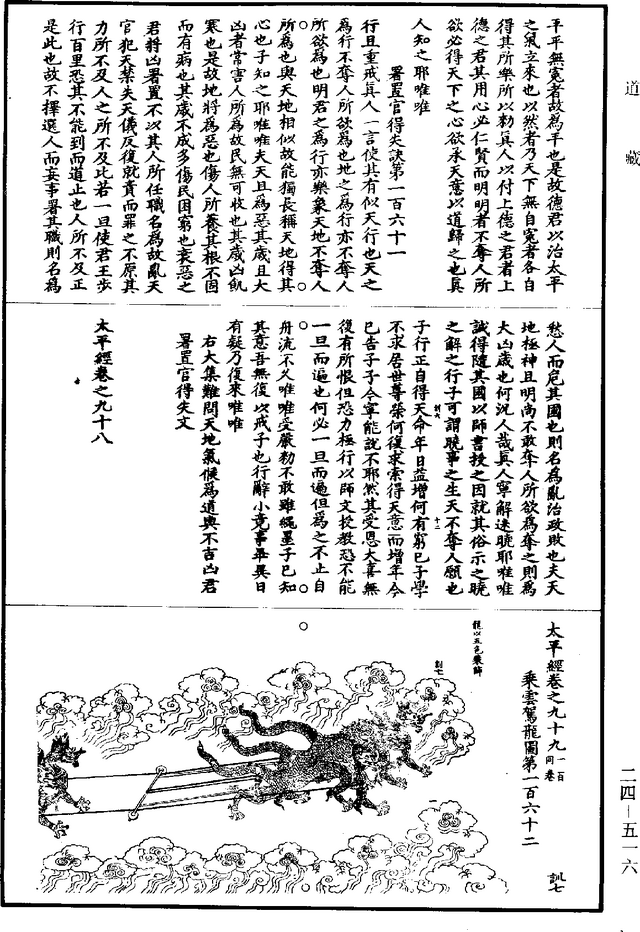 道藏
平平無寃者故為平也是故德君以治太平
之氣立來也以然者乃天下無自寃者各自
得其所樂所以勑真人以付上德之君者上
德之君其用心必仁賢而明明者不奪人所
欲必得天下之心欲承天意以道歸之也真
人知之耶唯唯
署置官得失訣第一百六十一
行且重戒真人一言使其有似天行也天之
為行不奪人所欲為也地之為行亦不奪人
所欲為也明君之為行亦樂象天地不奪人
所為也與天地相似故能獨長稱天地得其
心也子知之耶唯唯夫天且為惡其歲且大
凶者常害人所為故民無可收也其歲凶飢
寒也是故地將為惡也傷人所養其根不固
而有病也其歲不成多傷民困窮也衰惡之
君將凶署置不以其人所任職名為故亂天
官犯天禁失天儀反復就責而罪之不原其
力所不及人之所不及比若一旦使君王步
行百里恐其不能到而道止也人所不及正
是此也故不擇選人而妄事署其職則名為
愁人而危其國也則名為亂治政敗也夫天
地極神且明尚不敢奪人所欲為奪之則為
大凶歲也何況人哉真人寧解迷曉耶唯唯
誠得隨其國以師書授之因就其俗示之曉
之解之行子可謂曉事之生天不奪人願也
訓六
十二
子行正自得天命年日益增何有窮已子學
不求居世尊榮何復求索得天意而增年今
已告子子今寧能說不耶然其受恩大喜無
復有所恨但恐力極行以師文授教恐不能
一旦而遍也何必一旦而遍但為之不止自
舟流不久唯唯受嚴勑不敢雖繩墨子已知
其意吾無復以戒子也行辭小竟事畢異日
有疑乃復來唯唯
右大集難問天地氣候為道興不吉凶君
署置官得失文
太平經卷之九十八
太平經卷之九十九
一百同卷
訓七
乘雲駕龍圖第一百六十二
龍以五色裝飾
訓七
二四－五一六